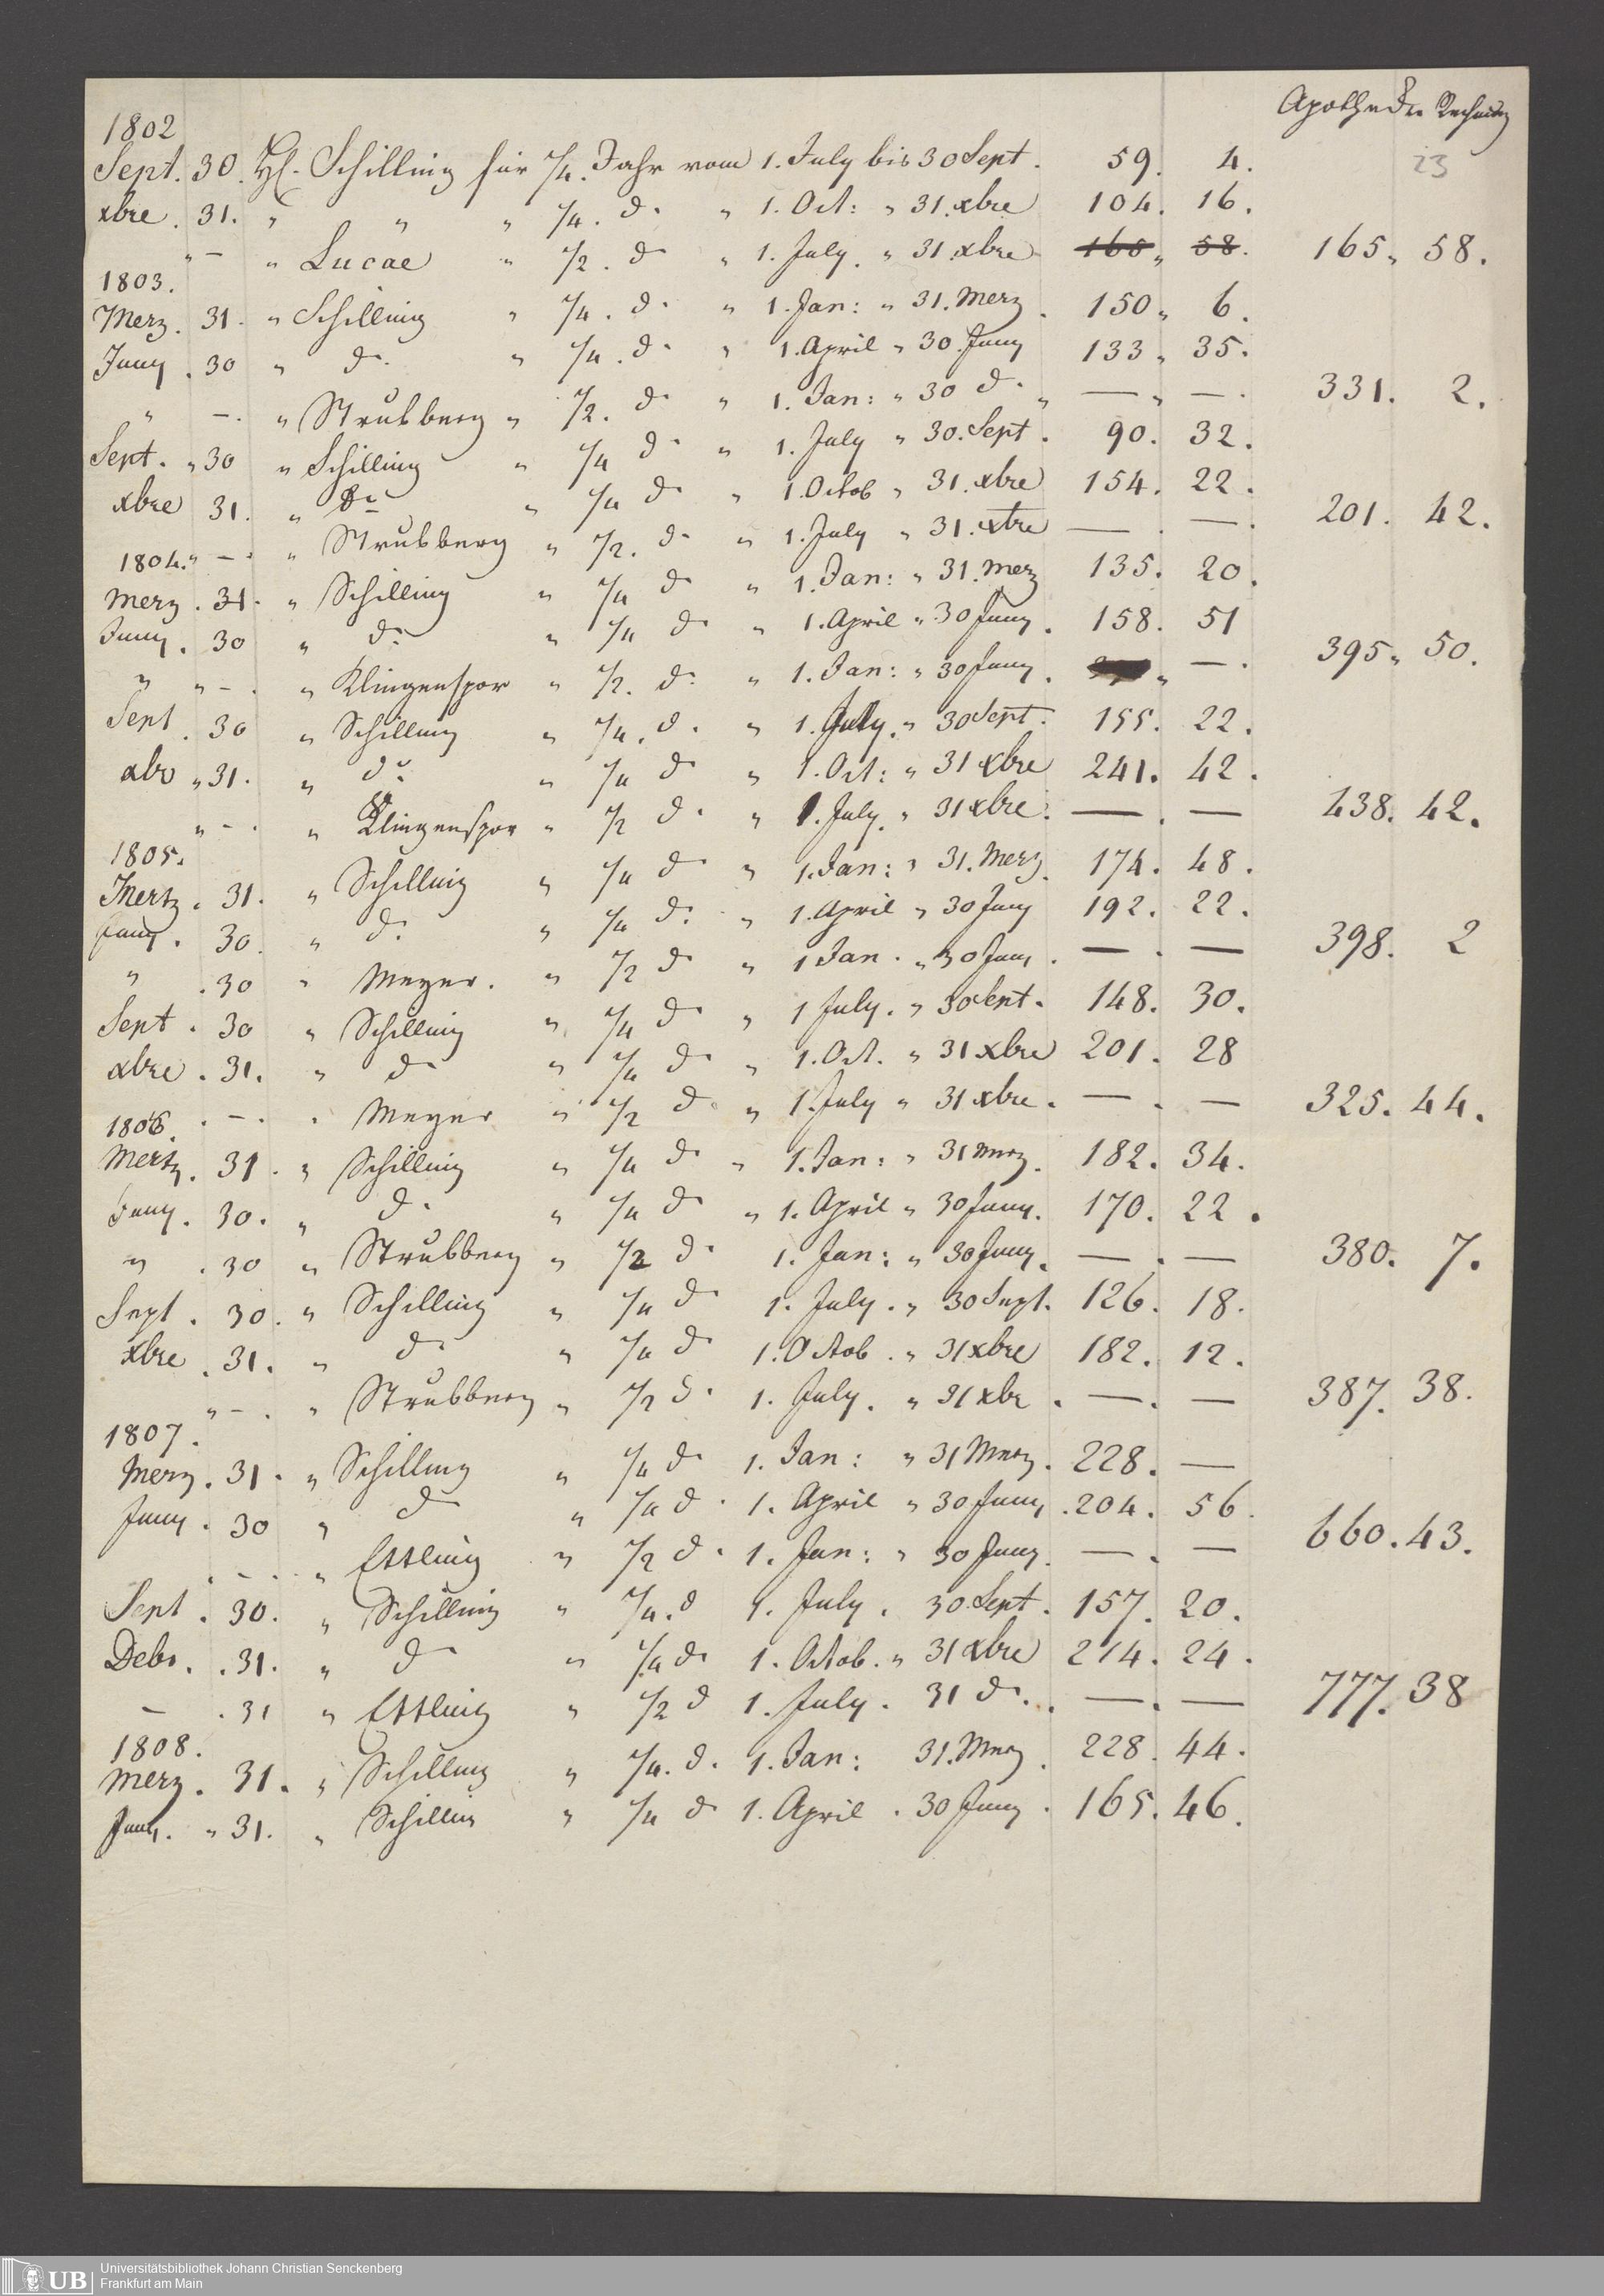 Apotheker Rechnung
23
1802
Sept. 30. H. Schilling für 1/4. Jahr vom 1. July bis 30 Sept. 59. 4.
xbre. 31. " " " 1/4. do " 1. Oct: " 31. xbre 104. 16.
" — " Lucae " 1/2. do " 1. July. " 31 xbre 165 " 58. 165 " 58.
1803.
Merz. 31. " Schilling " 1/4. do " 1. Jan: " 31. Merz. 150 " 6.
Juny. 30 " do " 1/4. do " 1. April " 30. Juny 133 " 35.
" — . " Strubberg " 1/2. do " 1. Jan: " 30 do " — " — . 331. 2.
Sept. " 30 " Schilling " 1/4 do " 1. July " 30. Sept. 90. 32.
xbre 31. " do " 1/4 do " 1. Octob " 31. xbre 154. 22.
" — . " Strubberg " 1/2. do " 1. July " 31. xbre — . — . 201. 42.
1804.
Merz. 31. " Schilling " 1/4 do " 1. Jan: " 31. Merz 135. 20.
Juny. 30 " do " 1/4 do " 1. April " 30 Juny. 158. 51
" " — . " Klingenspor " 1/2. do " 1. Jan: " 30 Juny. " — . 395 " 50.
Sept. 30 " Schilling " 1/4. do " 1. July. " 30 Sept. 155. 22.
xbr " 31. " do " 1/4 do " 1. Oct: " 31 xbre 241. 42.
" — . " Klingenspor " 1/2 do " 1. July. " 31 xbre. — . — 438. 42.
1805.
Mertz. 31. " Schilling " 1/4 do " 1. Jan: " 31. Merz. 174. 48.
Juny. 30. " do " 1/4 do " 1. April " 30 Juny 192. 22.
" . 30 " Meyer. " 1/2 do " 1 Jan. " 30 Juny. — . — 398. 2
Sept. 30 " Schilling " 1/4 do " 1 July. " 30 Sept. 148. 30.
xbre. 31. " do " 1/4 do " 1. Oct. " 31 xbre 201. 28
. — . " Meyer " 1/2 do " 1. July " 31 xbre. — . — 325. 44.
1806.
Mertz. 31. " Schilling " 1/4 do " 1. Jan: " 31 Merz. 182. 34.
Juny. 30. " do " 1/4 do " 1. April " 30 Juny. 170. 22.
" . 30 " Strubberg " 1/2 do 1. Jan: " 30 Juny. — . — 380. 7.
Sept. 30. " Schilling " 1/4 do 1. July. " 30 Sept. 126. 18.
xbre. 31. " do " 1/4 do 1. Octob. " 31 xbre 182. 12.
" — . " Strubberg " 1/2 do 1. July. " 31 xbr. — . — 387. 38.
1807.
Merz. 31. " Schilling " 1/4 do 1. Jan: " 31 Merz. 228. —
Juny. 30 " do " 1/4 do 1. April " 30 Juny. 204. 56.
. — . " Ettling " 1/2 do 1. Jan: " 30 Juny. — . — 660. 43.
Sept. 30. " Schilling " 1/4. do 1. July. 30. Sept. 157. 20.
Debr. . 31. " do " 1/4 do 1. Octob. " 31 xbre 214. 24.
— . 31 " Ettling " 1/2 do 1. July. 31 do. — . — 777. 38
1808.
Merz. 31. " Schilling " 1/4. do 1. Jan: 31. Merz. 228. 44.
Juny. " 31. " Schillin " 1/4 do 1. April. 30 Juny. 165. 46.
UB Universitätsbibliothek Johann Christian Senckenberg
Frankfurt am Main